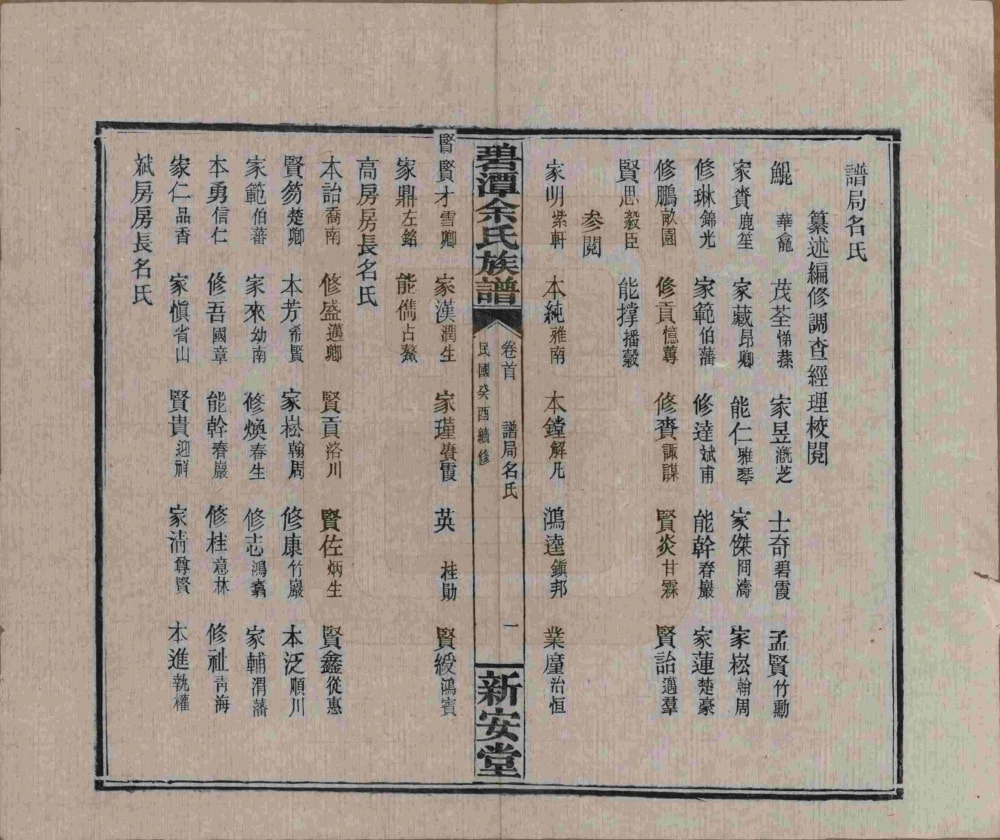 譜局名氏
纂述編修調查經理校閱
鯤 華龕 茂荃悌蓀 家昱溉芝 士奇碧霞 孟賢竹勳
家賚鹿笙 家藏昂卿 能仁雅琴 家傑岡濤 家崧翰周
修琳錦光 家範伯藩 修達斌甫 能幹春巖 家蓮楚豪
修鵬畝園 修貢憶蓴 修賚諏謀 賢炎甘霖 賢詒邁羣
賢思毅臣 能撐播穀
參閱
家明紫軒 本純雅南 本鏜解凡 鴻逵鎮邦 業廑治恒
碧潭余氏族譜 卷首 譜局名氏 民國癸酉續修 一 新安堂
賢才雪卿 家漢潤生 家瑾賡霞 英 桂勛 賢綬鴻賓
家鼎左銘 能儁占鰲
高房房長名氏
本詒喬南 修盛邁卿 賢貢洛川 賢佐炳生 賢鑫從惠
賢笏楚卿 本芳希賢 家崧翰周 修康竹巖 本泛順川
家範伯蕃 家來幼南 修煥春生 修志鴻翥 家輔渭藩
本勇信仁 修吾國章 能幹春巖 修桂意林 修祉青海
家仁品香 家愼省山 賢貴迎祥 家淸尊賢 本進執權
斌房房長名氏